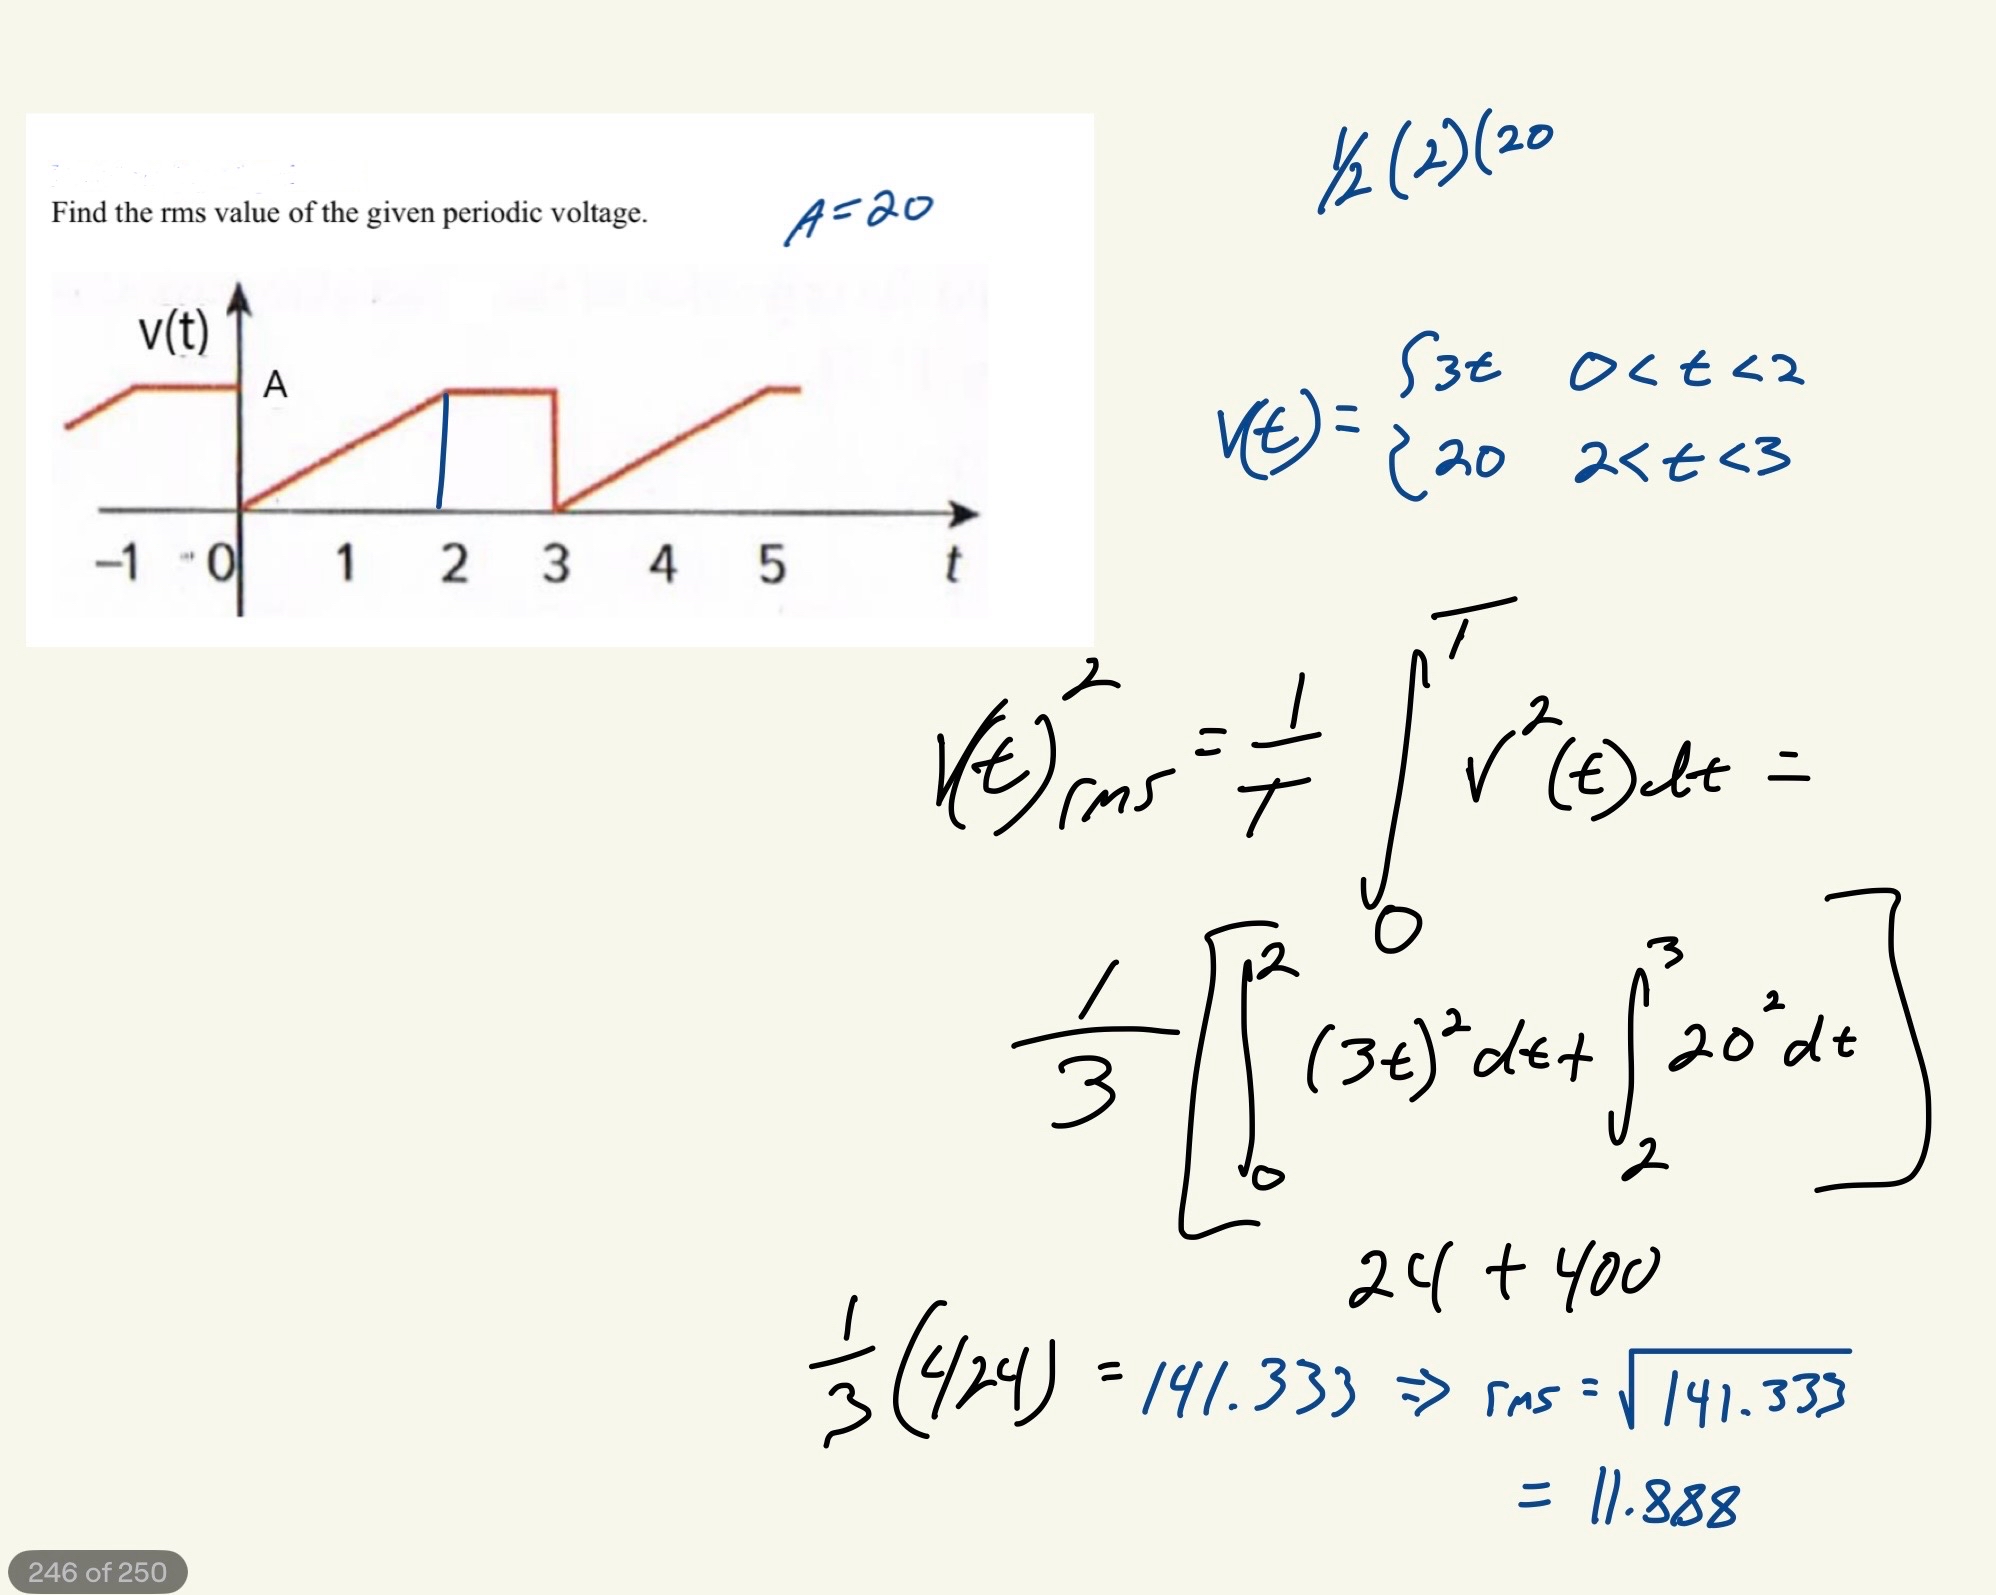 Find the rms value of the given periodic voltage.
A=20
v(t)
A
–1 0 1 2 3 4 5 t
½(2)(20
V(t) = { 3t 0<t<2
20 2<t<3
V(t)²rms = 1/T ∫₀ᵀ v²(t)dt =
1/3 [ ∫₀² (3t)² dt + ∫₂³ 20² dt ]
24 + 400
1/3 (424) = 141.333 ⇒ rms = √141.333
= 11.888
246 of 250